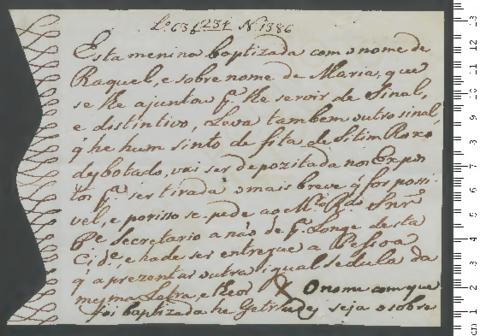 Lº 636 234 N. 1386
Esta menina baptizada com o nome de
Raquel, e sobre nome de Maria, que
se lhe ajunta pª lhe servir de Sinal,
e distintivo, Leva tambem outro sinal,
q he hum sinto de fita de Sitim Roxo
dysbotado, vai ser depozitada nos Expos
tos pª ser tirada o mais breve q for possi
vel, e porisso se pede ao Snr
Pe Secretario a não de pª Longe desta
Cide, e hade ser entregue a Pessoa
q aprezentar outra igual sedula da
mesma Letra, e theor O nome com que
foi baptizada he Getrudes seja o sobre